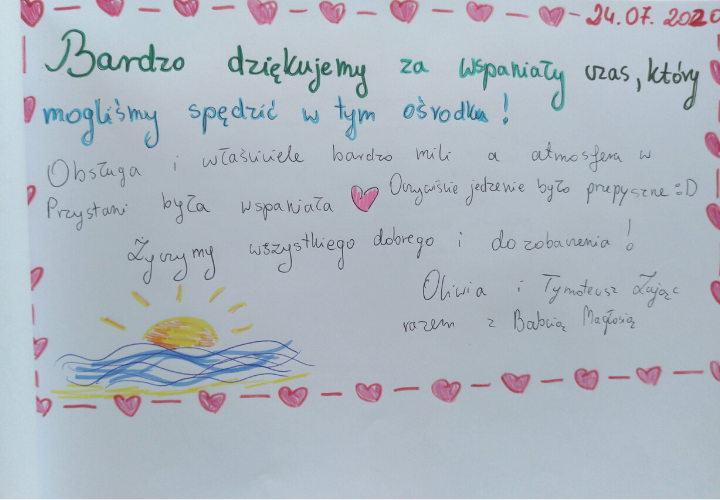 24.07.2020
Bardzo dziękujemy za wspaniały czas, który
mogliśmy spędzić w tym ośrodku!
Obsługa i właściciele bardzo mili a atmosfera w
Przystani była wspaniała ♥ Oczywiście jedzenie było przepyszne :D
Życzymy wszystkiego dobrego i do zobaczenia!
Oliwia i Tymoteusz Zając
razem z Babcią Małgosią